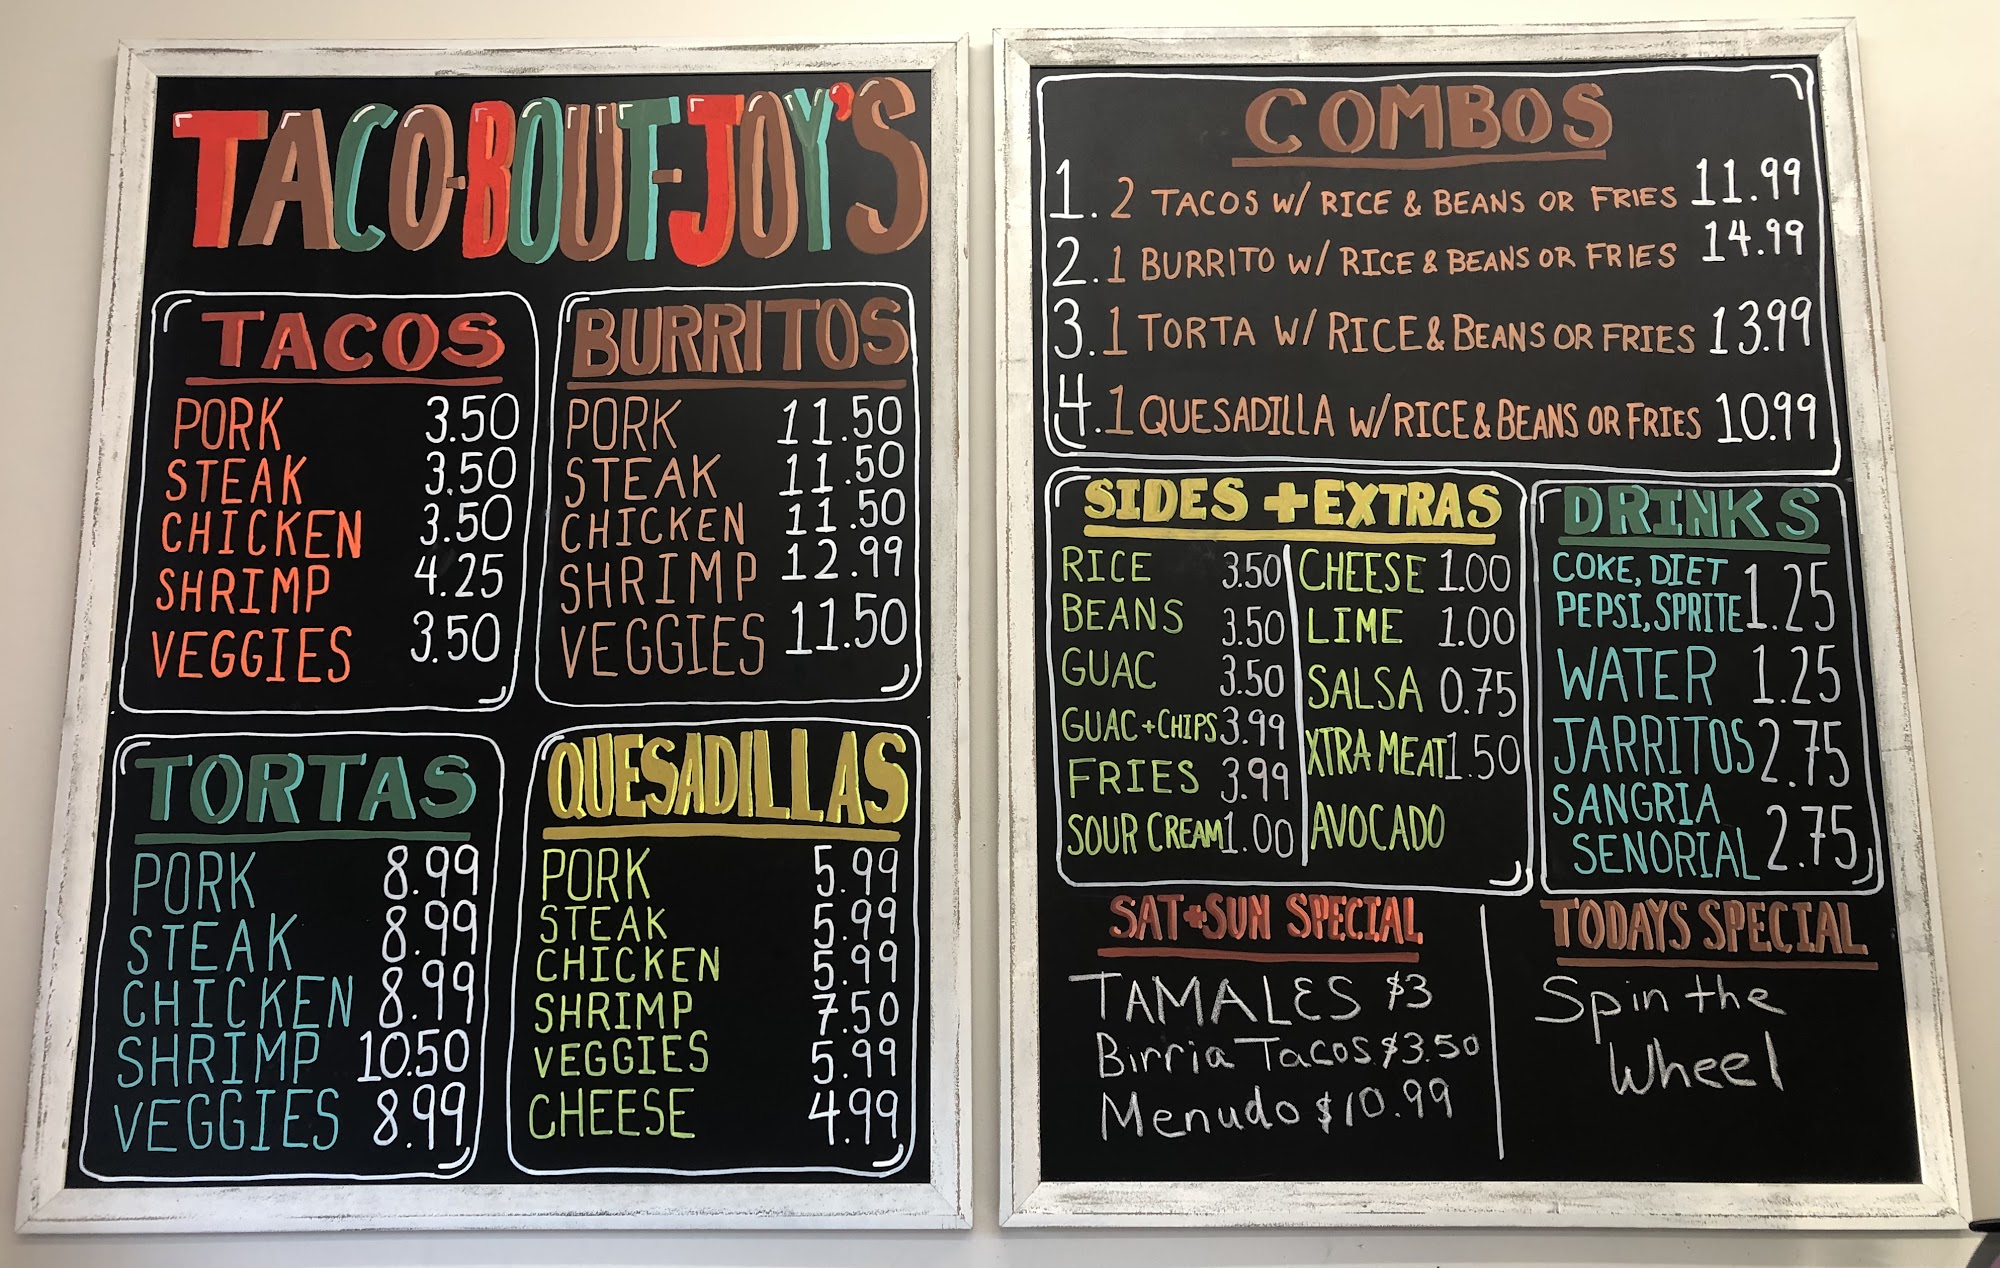 TACO-BOUT-JOY'S
TACOS
PORK 3.50
STEAK 3.50
CHICKEN 3.50
SHRIMP 4.25
VEGGIES 3.50
BURRITOS
PORK 11.50
STEAK 11.50
CHICKEN 11.50
SHRIMP 12.99
VEGGIES 11.50
TORTAS
PORK 8.99
STEAK 8.99
CHICKEN 8.99
SHRIMP 10.50
VEGGIES 8.99
QUESADILLAS
PORK 5.99
STEAK 5.99
CHICKEN 5.99
SHRIMP 7.50
VEGGIES 5.99
CHEESE 4.99
COMBOS
1. 2 TACOS W/ RICE & BEANS OR FRIES 11.99
2. 1 BURRITO W/ RICE & BEANS OR FRIES 14.99
3. 1 TORTA W/ RICE & BEANS OR FRIES 13.99
4. 1 QUESADILLA W/ RICE & BEANS OR FRIES 10.99
SIDES + EXTRAS
RICE 3.50
BEANS 3.50
GUAC 3.50
GUAC + CHIPS 3.99
FRIES 3.99
SOUR CREAM 1.00
CHEESE 1.00
LIME 1.00
SALSA 0.75
XTRA MEAT 1.50
AVOCADO
DRINKS
COKE, DIET
PEPSI, SPRITE 1.25
WATER 1.25
JARRITOS 2.75
SANGRIA
SENORIAL 2.75
SAT + SUN SPECIAL
TAMALES $3
Birria Tacos $3.50
Menudo $10.99
TODAYS SPECIAL
Spin the
Wheel